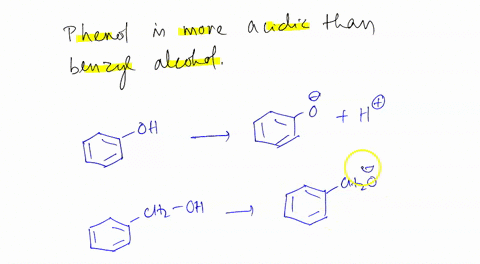 Phenol is more acidic than
benzyl alcohol.
OH → O⊖ + H⊕
CH2-OH → CH2O⊖